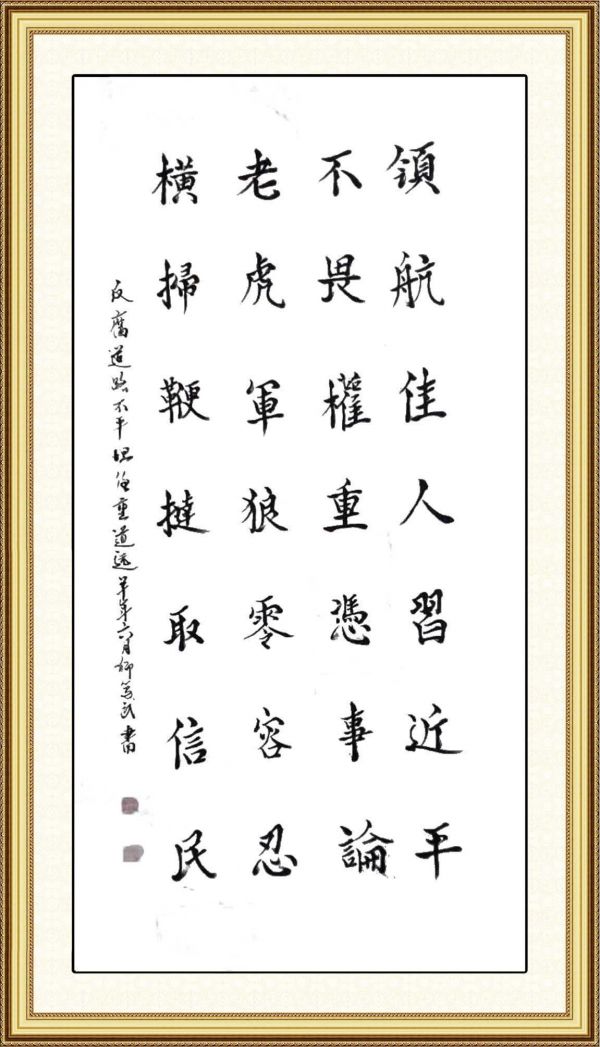 領航佳人習近平
不畏權重憑事論
老虎軍狼零容忍
橫掃鞭撻取信民
反腐道路不平坦任重道遠羊年六月柳善民書